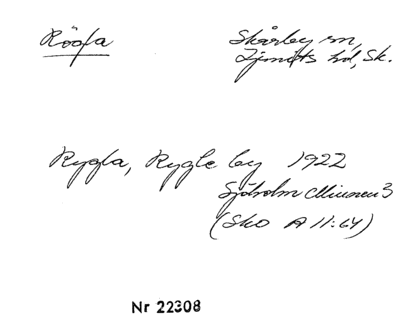 Rögla
Skårby sn,
Ljunits hd, Sk.
Rygla, Rygle by 1922
Sjöholm Minnen 3
(SkO A 11:64)
Nr 22308